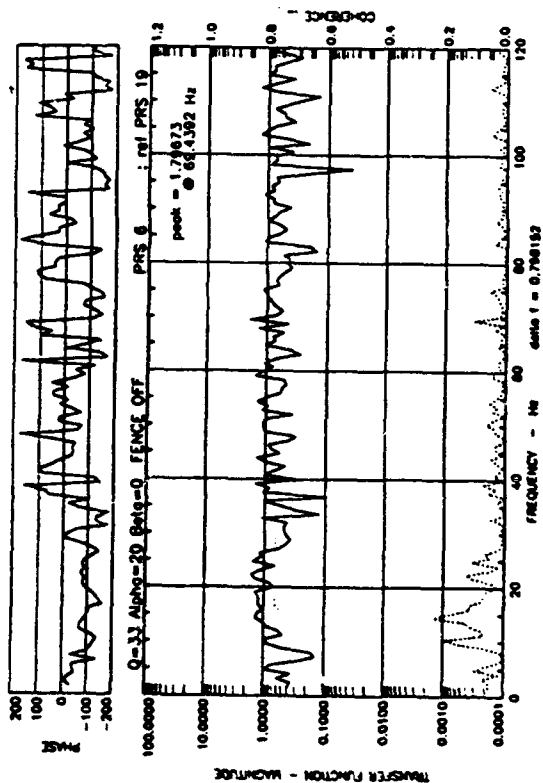 PHASE
200
100
0
-100
-200
Q=33 Alpha=20 Beta=0 FENCE OFF PRS 6 : ref PRS 19
peak = 1.79673
@ 69.4392 Hz
TRANSFER FUNCTION - MAGNITUDE
100.0000
10.0000
1.0000
0.1000
0.0100
0.0010
0.0001
COHERENCE
1.2
1.0
0.8
0.6
0.4
0.2
0.0
0 20 40 60 80 100 120
FREQUENCY - Hz
delta f = 0.798152